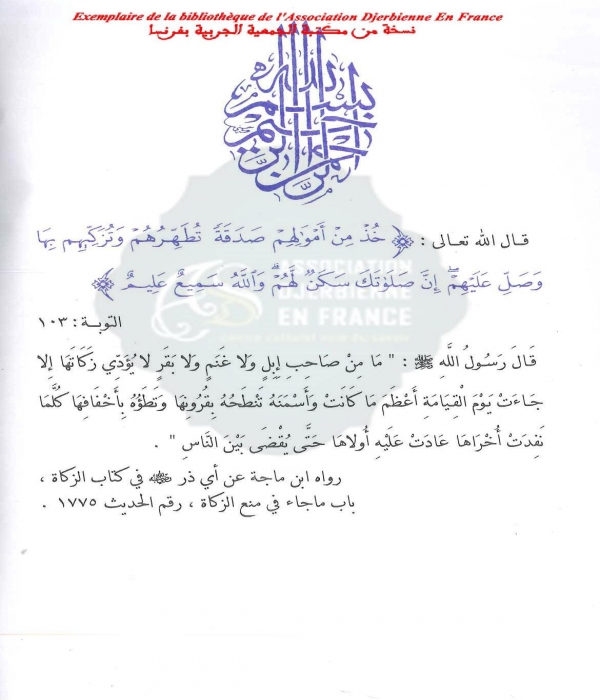 Exemplaire de la bibliothèque de l'Association Djerbienne En France
نسخة من مكتبة الجمعية الجربية بفرنسا
بسم الله الرحمن الرحيم
قال الله تعالى : ﴿ خُذْ مِنْ أَمْوَٰلِهِمْ صَدَقَةً تُطَهِّرُهُمْ وَتُزَكِّيهِم بِهَا
وَصَلِّ عَلَيْهِمْ ۖ إِنَّ صَلَوٰتَكَ سَكَنٌ لَّهُمْ ۗ وَٱللَّهُ سَمِيعٌ عَلِيمٌ ﴾
التوبة : ١٠٣
قَالَ رَسُولُ اللَّهِ ﷺ : " مَا مِنْ صَاحِبِ إِبِلٍ وَلا غَنَمٍ وَلا بَقَرٍ لا يُؤَدِّي زَكَاتَهَا إِلا
جَاءَتْ يَوْمَ الْقِيَامَةِ أَعْظَمَ مَا كَانَتْ وَأَسْمَنَهُ تَنْطَحُهُ بِقُرُونِهَا وَتَطَؤُهُ بِأَخْفَافِهَا كُلَّمَا
نَفِدَتْ أُخْرَاهَا عَادَتْ عَلَيْهِ أُولاهَا حَتَّى يُقْضَى بَيْنَ النَّاسِ " .
رواه ابن ماجة عن أبي ذر ﷺ في كتاب الزكاة ،
باب ماجاء في منع الزكاة ، رقم الحديث ١٧٧٥ .
ASSOCIATION
DJERBIENNE
EN FRANCE